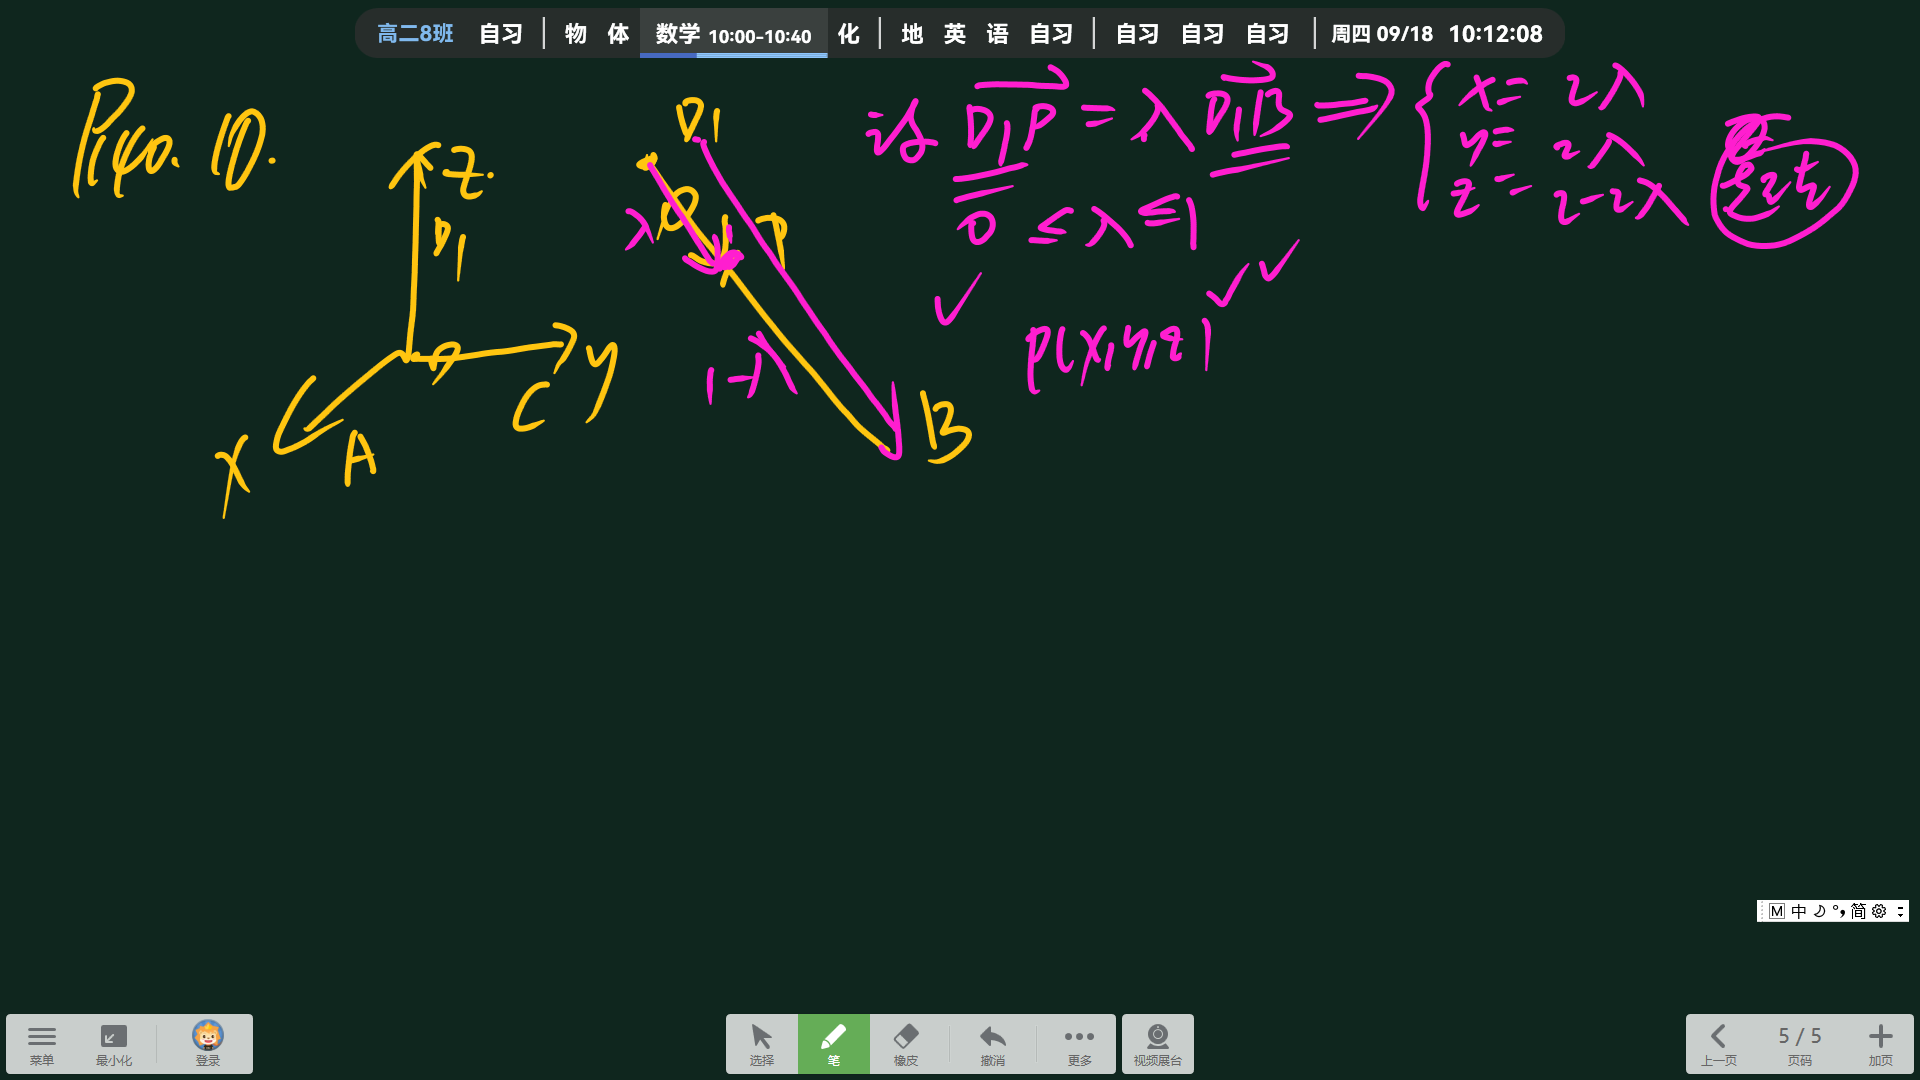 高二8班 自习 | 物 体 数学 10:00-10:40 化 | 地 英 语 自习 | 自习 自习 自习 | 周四 09/18 10:12:08
P140. 10.
Z.
D1
D
y
C
A
X
D1
P
λ
1-λ
B
设 D1P = λ D1B ⇒ { x = 2λ
y = 2λ
z = 2-2λ
0 ≤ λ ≤ 1
P(x,y,z)
M 中 简
菜单 最小化 登录 选择 笔 橡皮 撤消 更多 视频展台 上一页 5 / 5 页码 加页